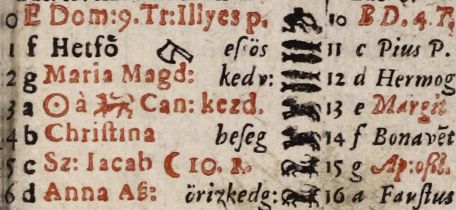 0 E Dom:9. Tr: Illyes p. 10 B D. 4. T.
1 f Hetfő esős 11 c Pius P.
2 g Maria Magd: kedv: 12 d Hermog
3 a ☉ à ♌ Can: kezd. 13 e Margit
4 b Christina beseg 14 f Bonavēt
5 c Sz: Iacab ☾ 10. R. 15 g Ap: oszl.
6 d Anna Aß: örizkedg: 16 a Faustus